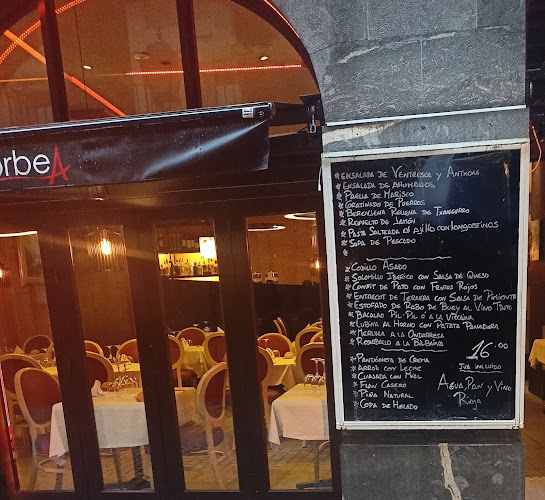 orbeA
* ENSALADA DE VENTRESCA Y ANTXOAS
* ENSALADA DE AHUMADOS
* PAELLA DE MARISCO
* GRATINADO DE PUERROS
* BERENJENA RELLENA DE TXANGURRO
* REVUELTO DE JAMÓN
* PASTA SALTEADA AL AJILLO CON LANGOSTINOS
* SOPA DE PESCADO
*
* CODILLO ASADO
* SOLOMILLO IBERICO CON SALSA DE QUESO
* CONFIT DE PATO CON FRUTOS ROJOS
* ENTRECOT DE TERNERA CON SALSA DE PIMIENTA
* ESTOFADO DE RABO DE BUEY AL VINO TINTO
* BACALAO PIL-PIL O A LA VIZCAINA
* LUBINA AL HORNO CON PATATA PANADERA
* MERLUZA A LA ONDARRESA
* REBOBALLO A LA BILBAINA
* PANTXINETA DE CREMA
* ARROZ CON LECHE
* CUAJADA CON MIEL
* FLAN CASERO
* PIÑA NATURAL
* COPA DE HELADO
16.00
IVA INCLUIDO
AGUA, PAN Y VINO
RIOJA